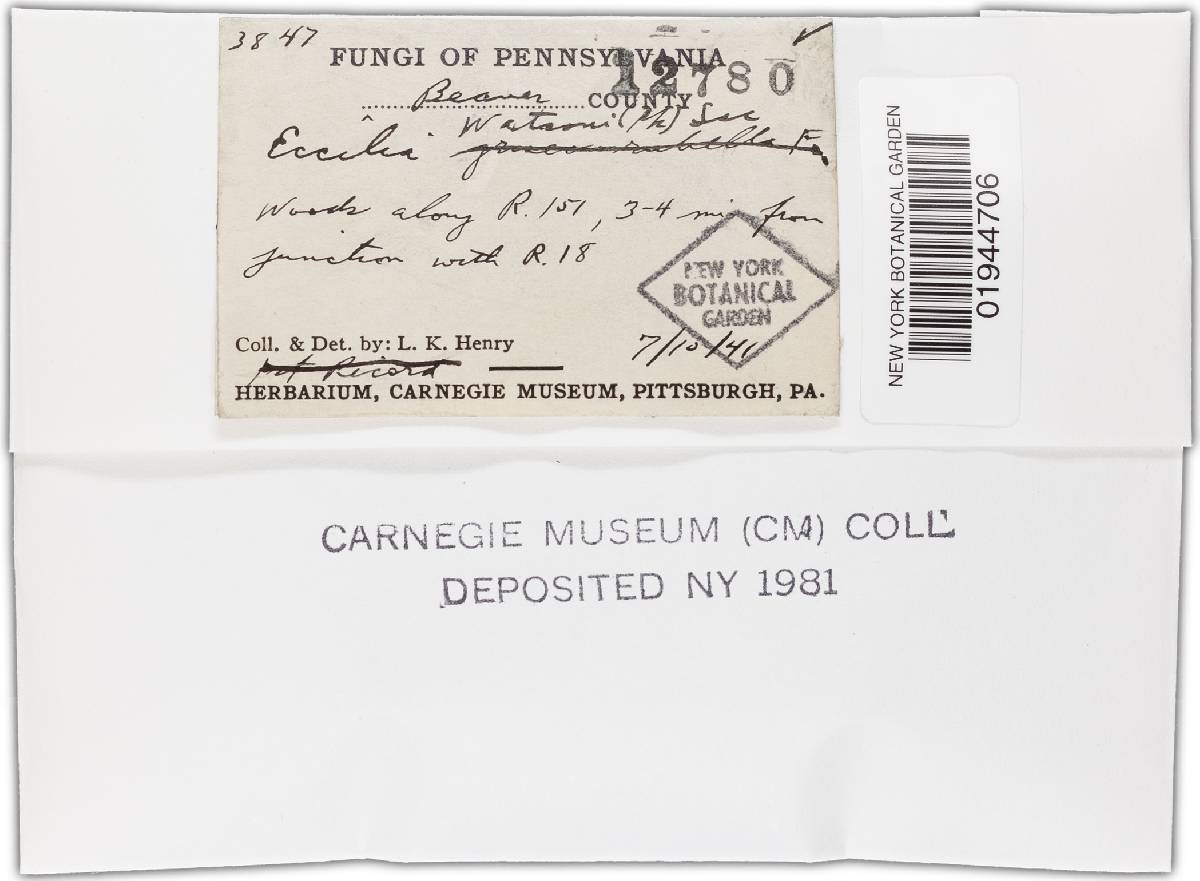 3847
FUNGI OF PENNSYLVANIA
12780
Beaver COUNTY
Watsoni (Pk) Sac
Eccilia
Woods along R. 151, 3-4 mi from
junction with R. 18
NEW YORK
BOTANICAL
GARDEN
Coll. & Det. by: L. K. Henry
7/10/41
1st Record
HERBARIUM, CARNEGIE MUSEUM, PITTSBURGH, PA.
NEW YORK BOTANICAL GARDEN
01944706
CARNEGIE MUSEUM (CM) COLL.
DEPOSITED NY 1981